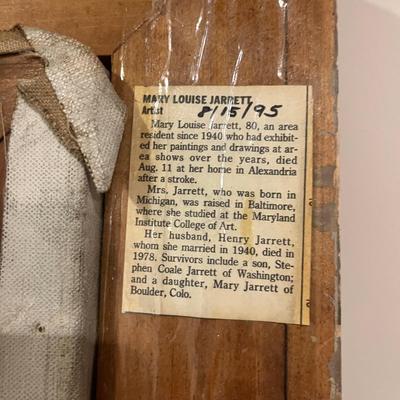 MARY LOUISE JARRETT
Artist 8/15/95
Mary Louise Jarrett, 80, an area
resident since 1940 who had exhibit-
ed her paintings and drawings at ar-
ea shows over the years, died
Aug. 11 at her home in Alexandria
after a stroke.
Mrs. Jarrett, who was born in
Michigan, was raised in Baltimore,
where she studied at the Maryland
Institute College of Art.
Her husband, Henry Jarrett,
whom she married in 1940, died in
1978. Survivors include a son, Ste-
phen Coale Jarrett of Washington;
and a daughter, Mary Jarrett of
Boulder, Colo.